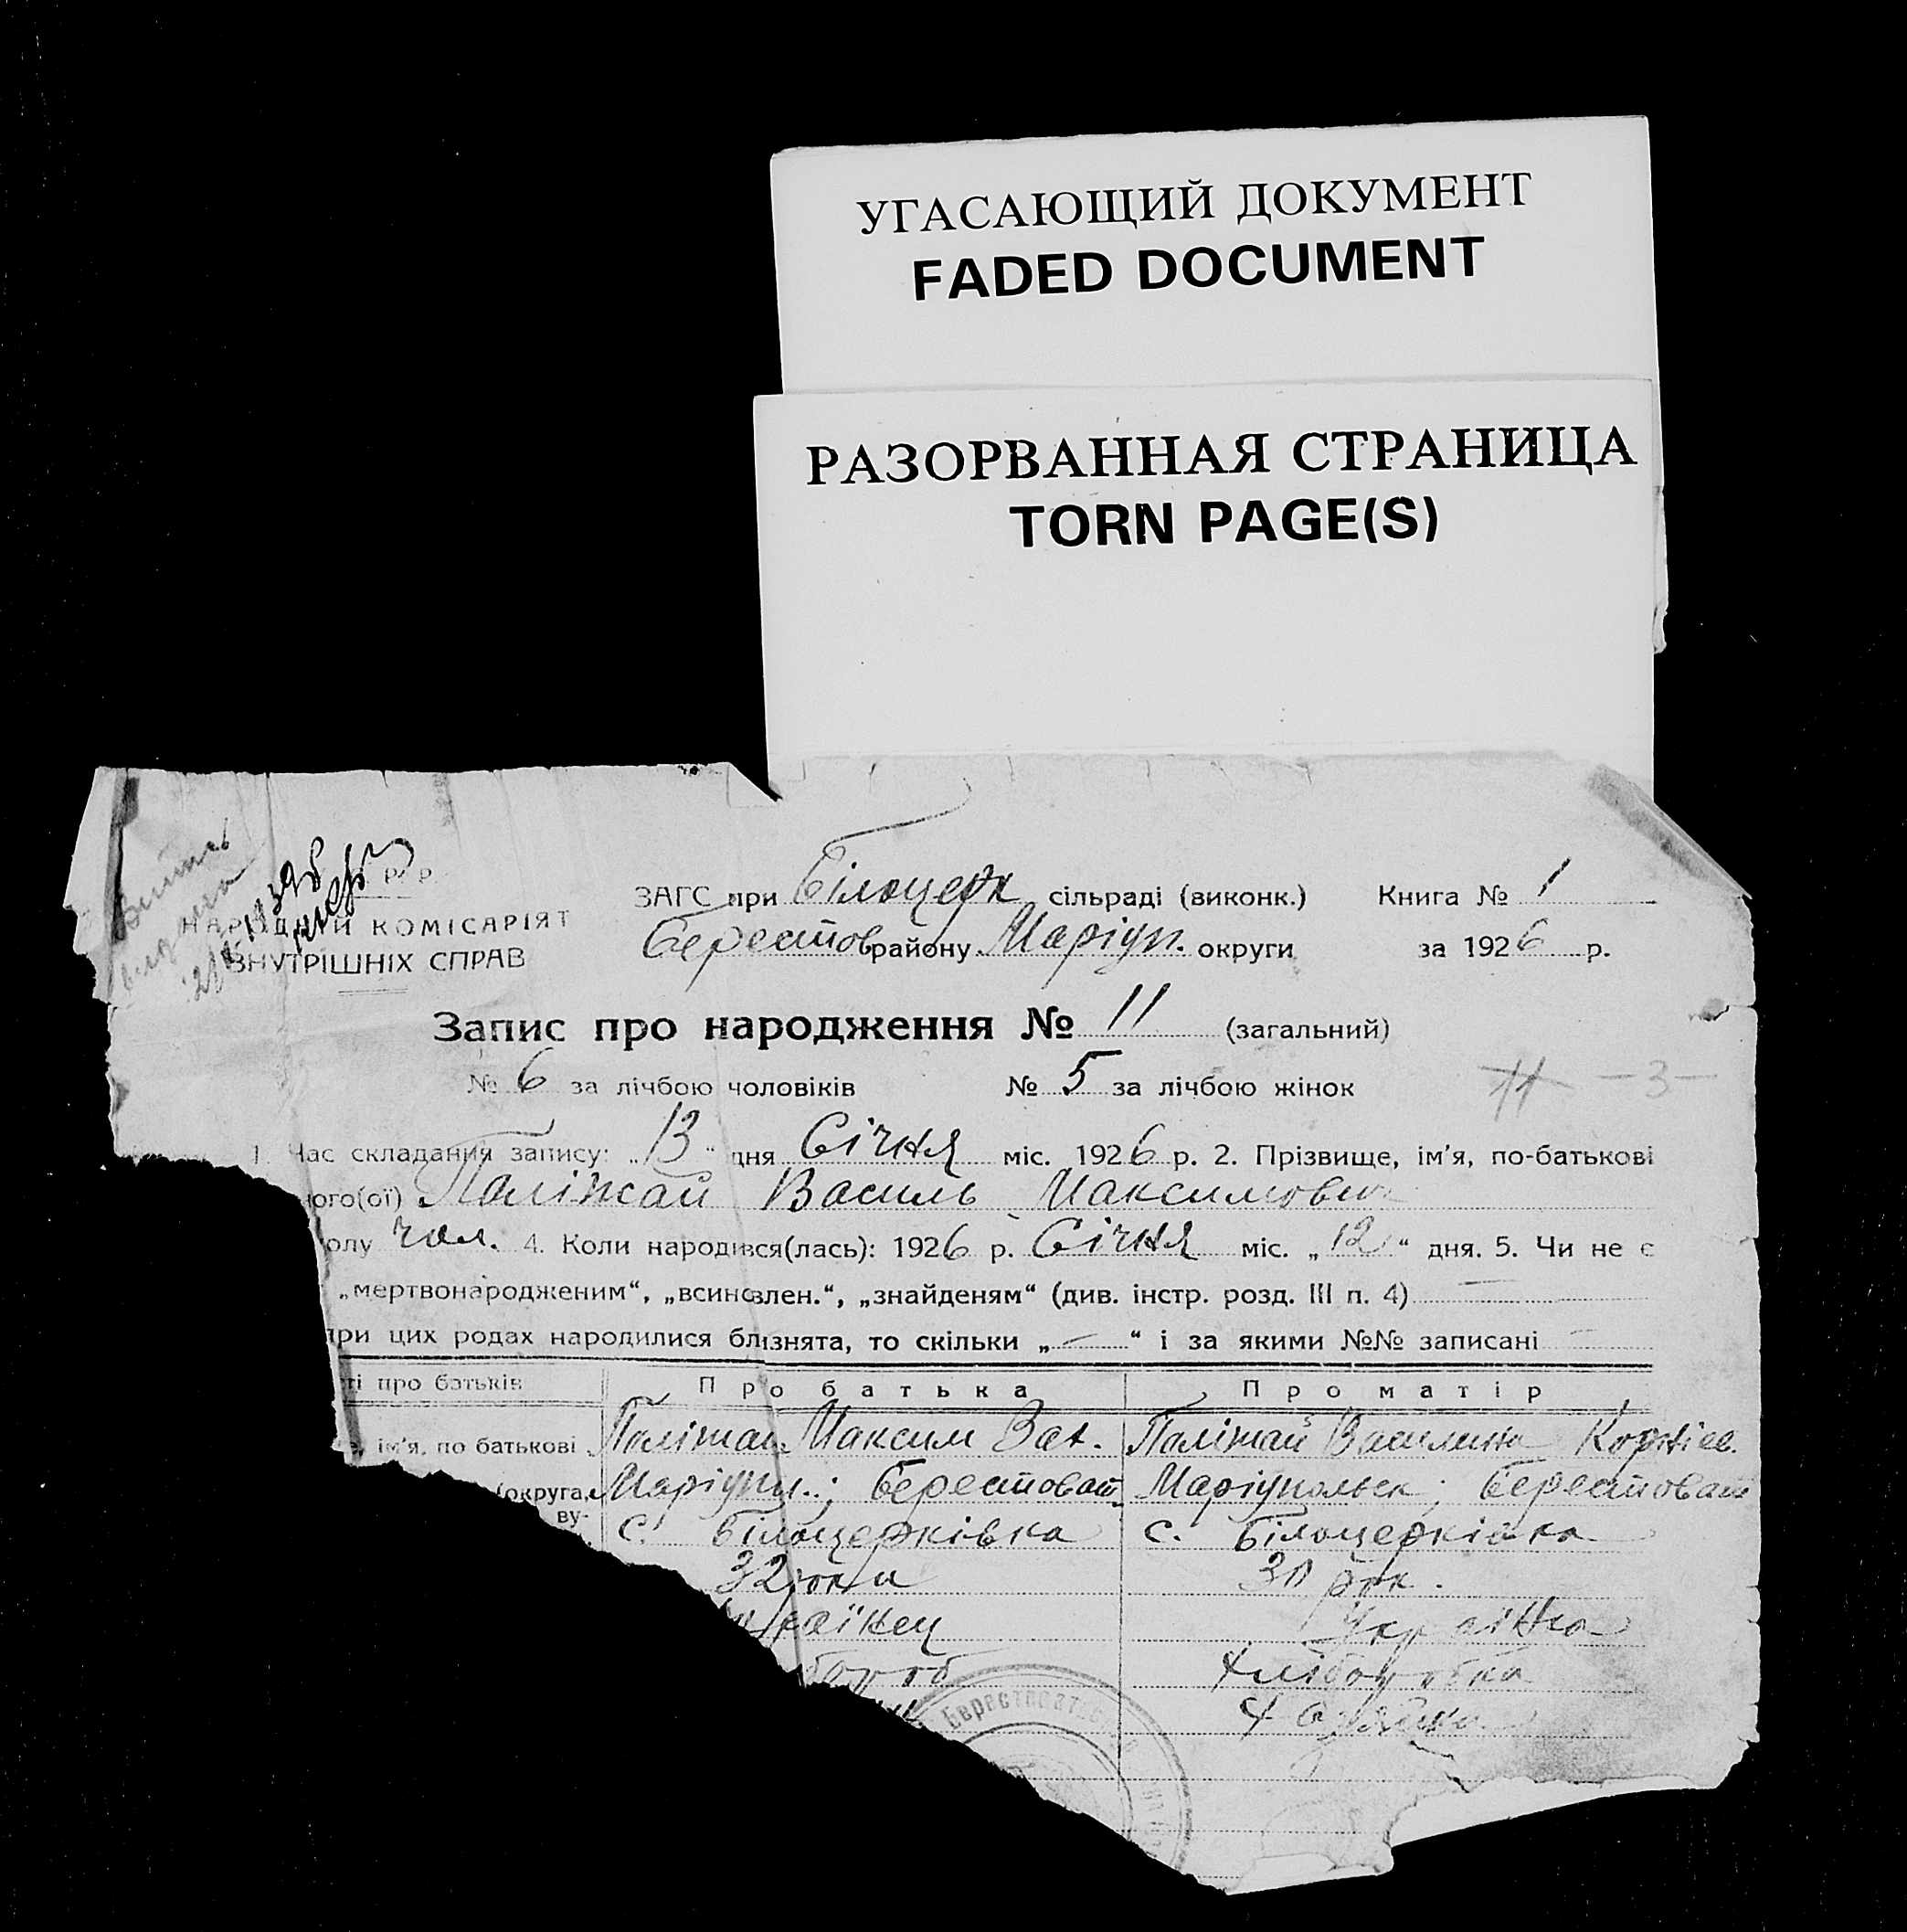 УГАСАЮЩИЙ ДОКУМЕНТ
FADED DOCUMENT
РАЗОРВАННАЯ СТРАНИЦА
TORN PAGE(S)
Р. Р.
НАРОДНІЙ КОМІСАРІЯТ
ВНУТРІШНІХ СПРАВ
ЗАГС при Білоцерк сільраді (виконк.) Книга № 1
Берестов району Маріуп. округи за 1926 р.
Запис про народження № 11 (загальний)
№ 6 за лічбою чоловіків № 5 за лічбою жінок
11 — 3 —
1. Час складання запису: „13“ дня Січня міс. 1926 р. 2. Прізвище, ім’я, по-батькові
ного(ої) Паліжай Василь Максимович
олу чол. 4. Коли народився(лась): 1926 р. Січня міс. „12“ дня. 5. Чи не є
„мертвонародженим“, „всиновлен.“, „знайденям“ (див. інстр. розд. III п. 4) —
при цих родах народилися близнята, то скільки „—“ і за якими №№ записані —
ті про батьків Про батька Про матір
ім’я, по батькові Паліжай Максим Паліжай Василина
(округа, Маріуп.; Берестоват. Маріупольск; Берестоват
ву- с. Білоцерківка с. Білоцерківка
32 роки 30 рок.
раїнец Українка
бороб Хлiборобка
Берестоват